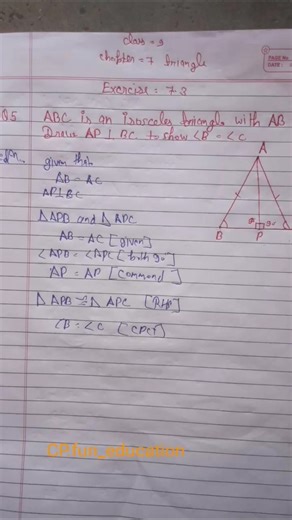 class = 9
chapter = 7 triangle
PAGE No.
DATE
Exercise = 7.3
Q5 ABC is an isosceles triangle with AB
Draw AP ⊥ BC to show ∠B = ∠C
given that
AB = AC
AP ⊥ BC
△ APB and △ APC
AB = AC [given]
∠APB = ∠APC [both 90]
AP = AP [Command]
△ APB ≅ △ APC [RHS]
∠B = ∠C [CPCT]
A
90
B
P
CPfun_education